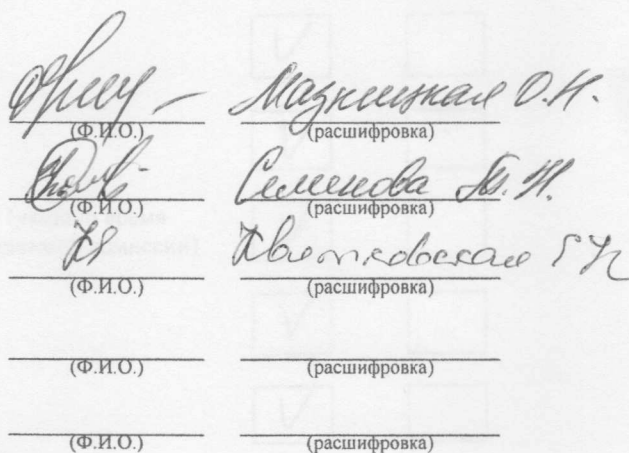 Мазницкая О.Н.
(Ф.И.О.) (расшифровка)
Семенова Т.Н.
(Ф.И.О.) (расшифровка)
Квятковская
(Ф.И.О.) (расшифровка)
(Ф.И.О.) (расшифровка)
(Ф.И.О.) (расшифровка)